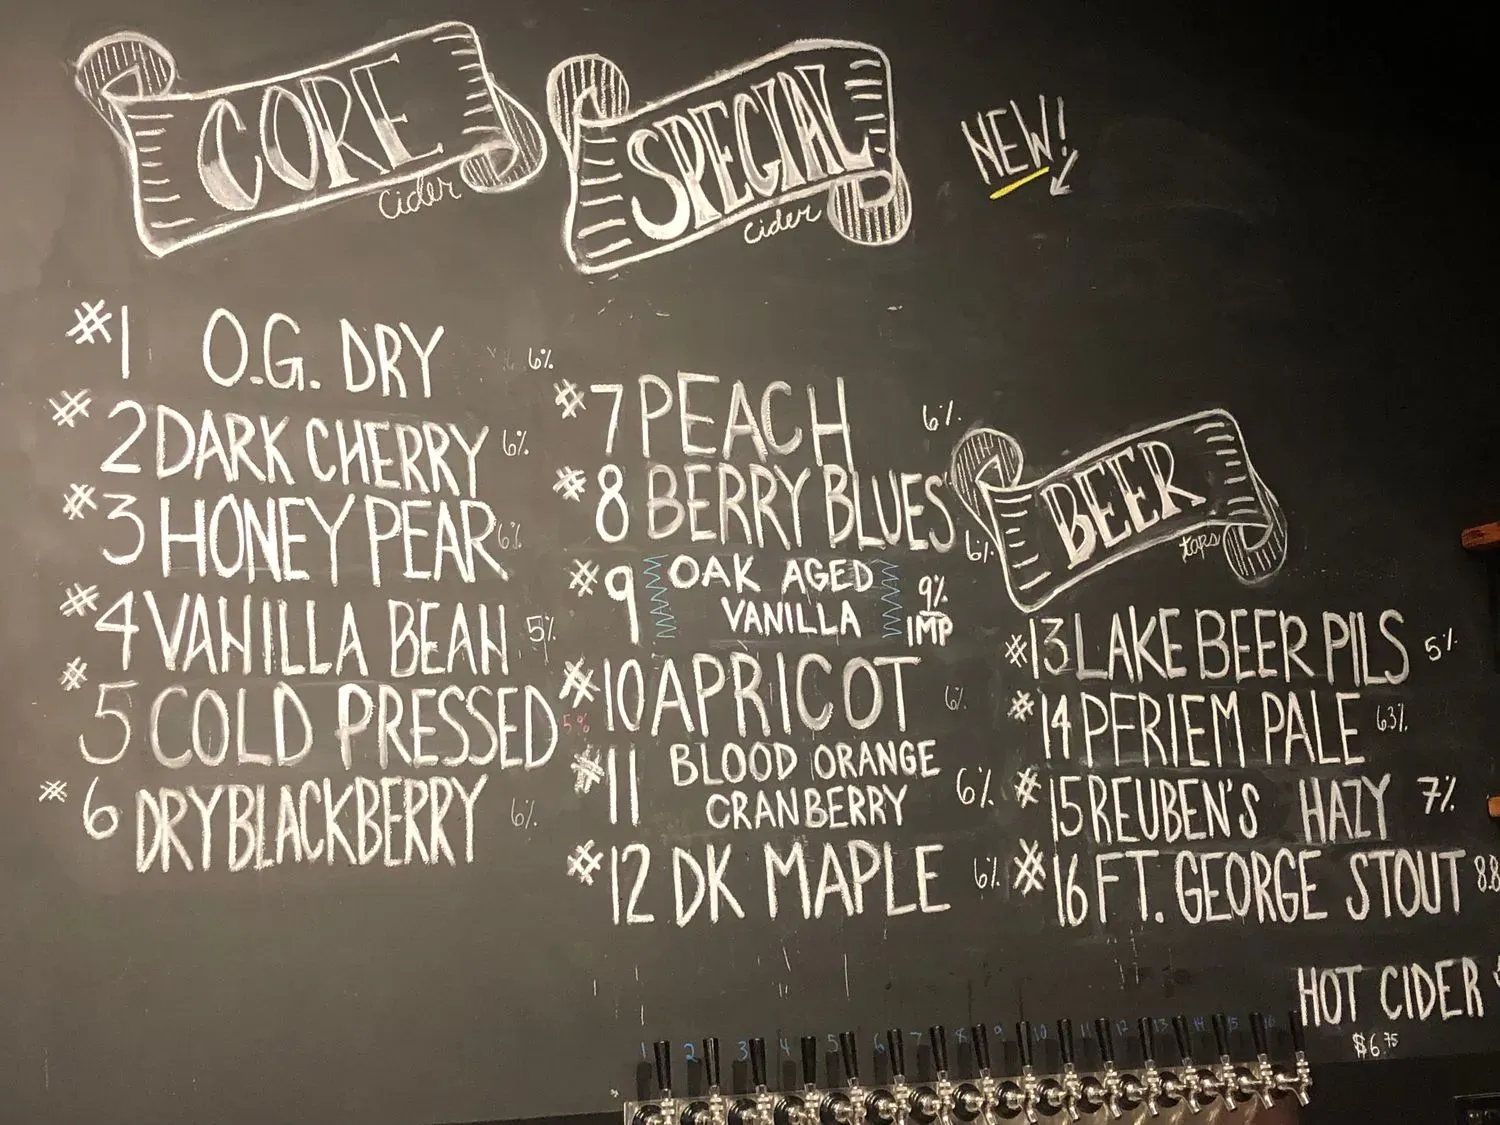 CORE
cider
#1 O.G. DRY 6%
#2 DARK CHERRY 6%
#3 HONEY PEAR 6%
#4 VANILLA BEAN 5%
#5 COLD PRESSED 5%
#6 DRY BLACKBERRY 6%
SPECIAL
cider
#7 PEACH 6%
#8 BERRY BLUES 6%
#9 OAK AGED
VANILLA
9%
IMP
#10 APRICOT 6%
#11 BLOOD ORANGE
CRANBERRY 6%
#12 DK MAPLE 6%
NEW!
BEER
taps
#13 LAKE BEER PILS 5%
#14 PFRIEM PALE 6.3%
#15 REUBEN'S HAZY 7%
#16 FT. GEORGE STOUT 8.8
HOT CIDER
$6.75
1 2 3 4 5 6 7 8 9 10 11 12 13 14 15 16